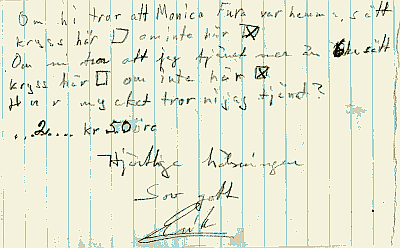 Om ni tror att Monica Fura var hemma, sätt
kryss här □ om inte här ☒
Om ni tror att jag tjänat mer än 6kr sätt
kryss här □ om inte här ☒
Hur mycket tror ni jag tjänat?
...2.... kr 50 öre
Hjärtliga hälsningar
Sov gott
Erik